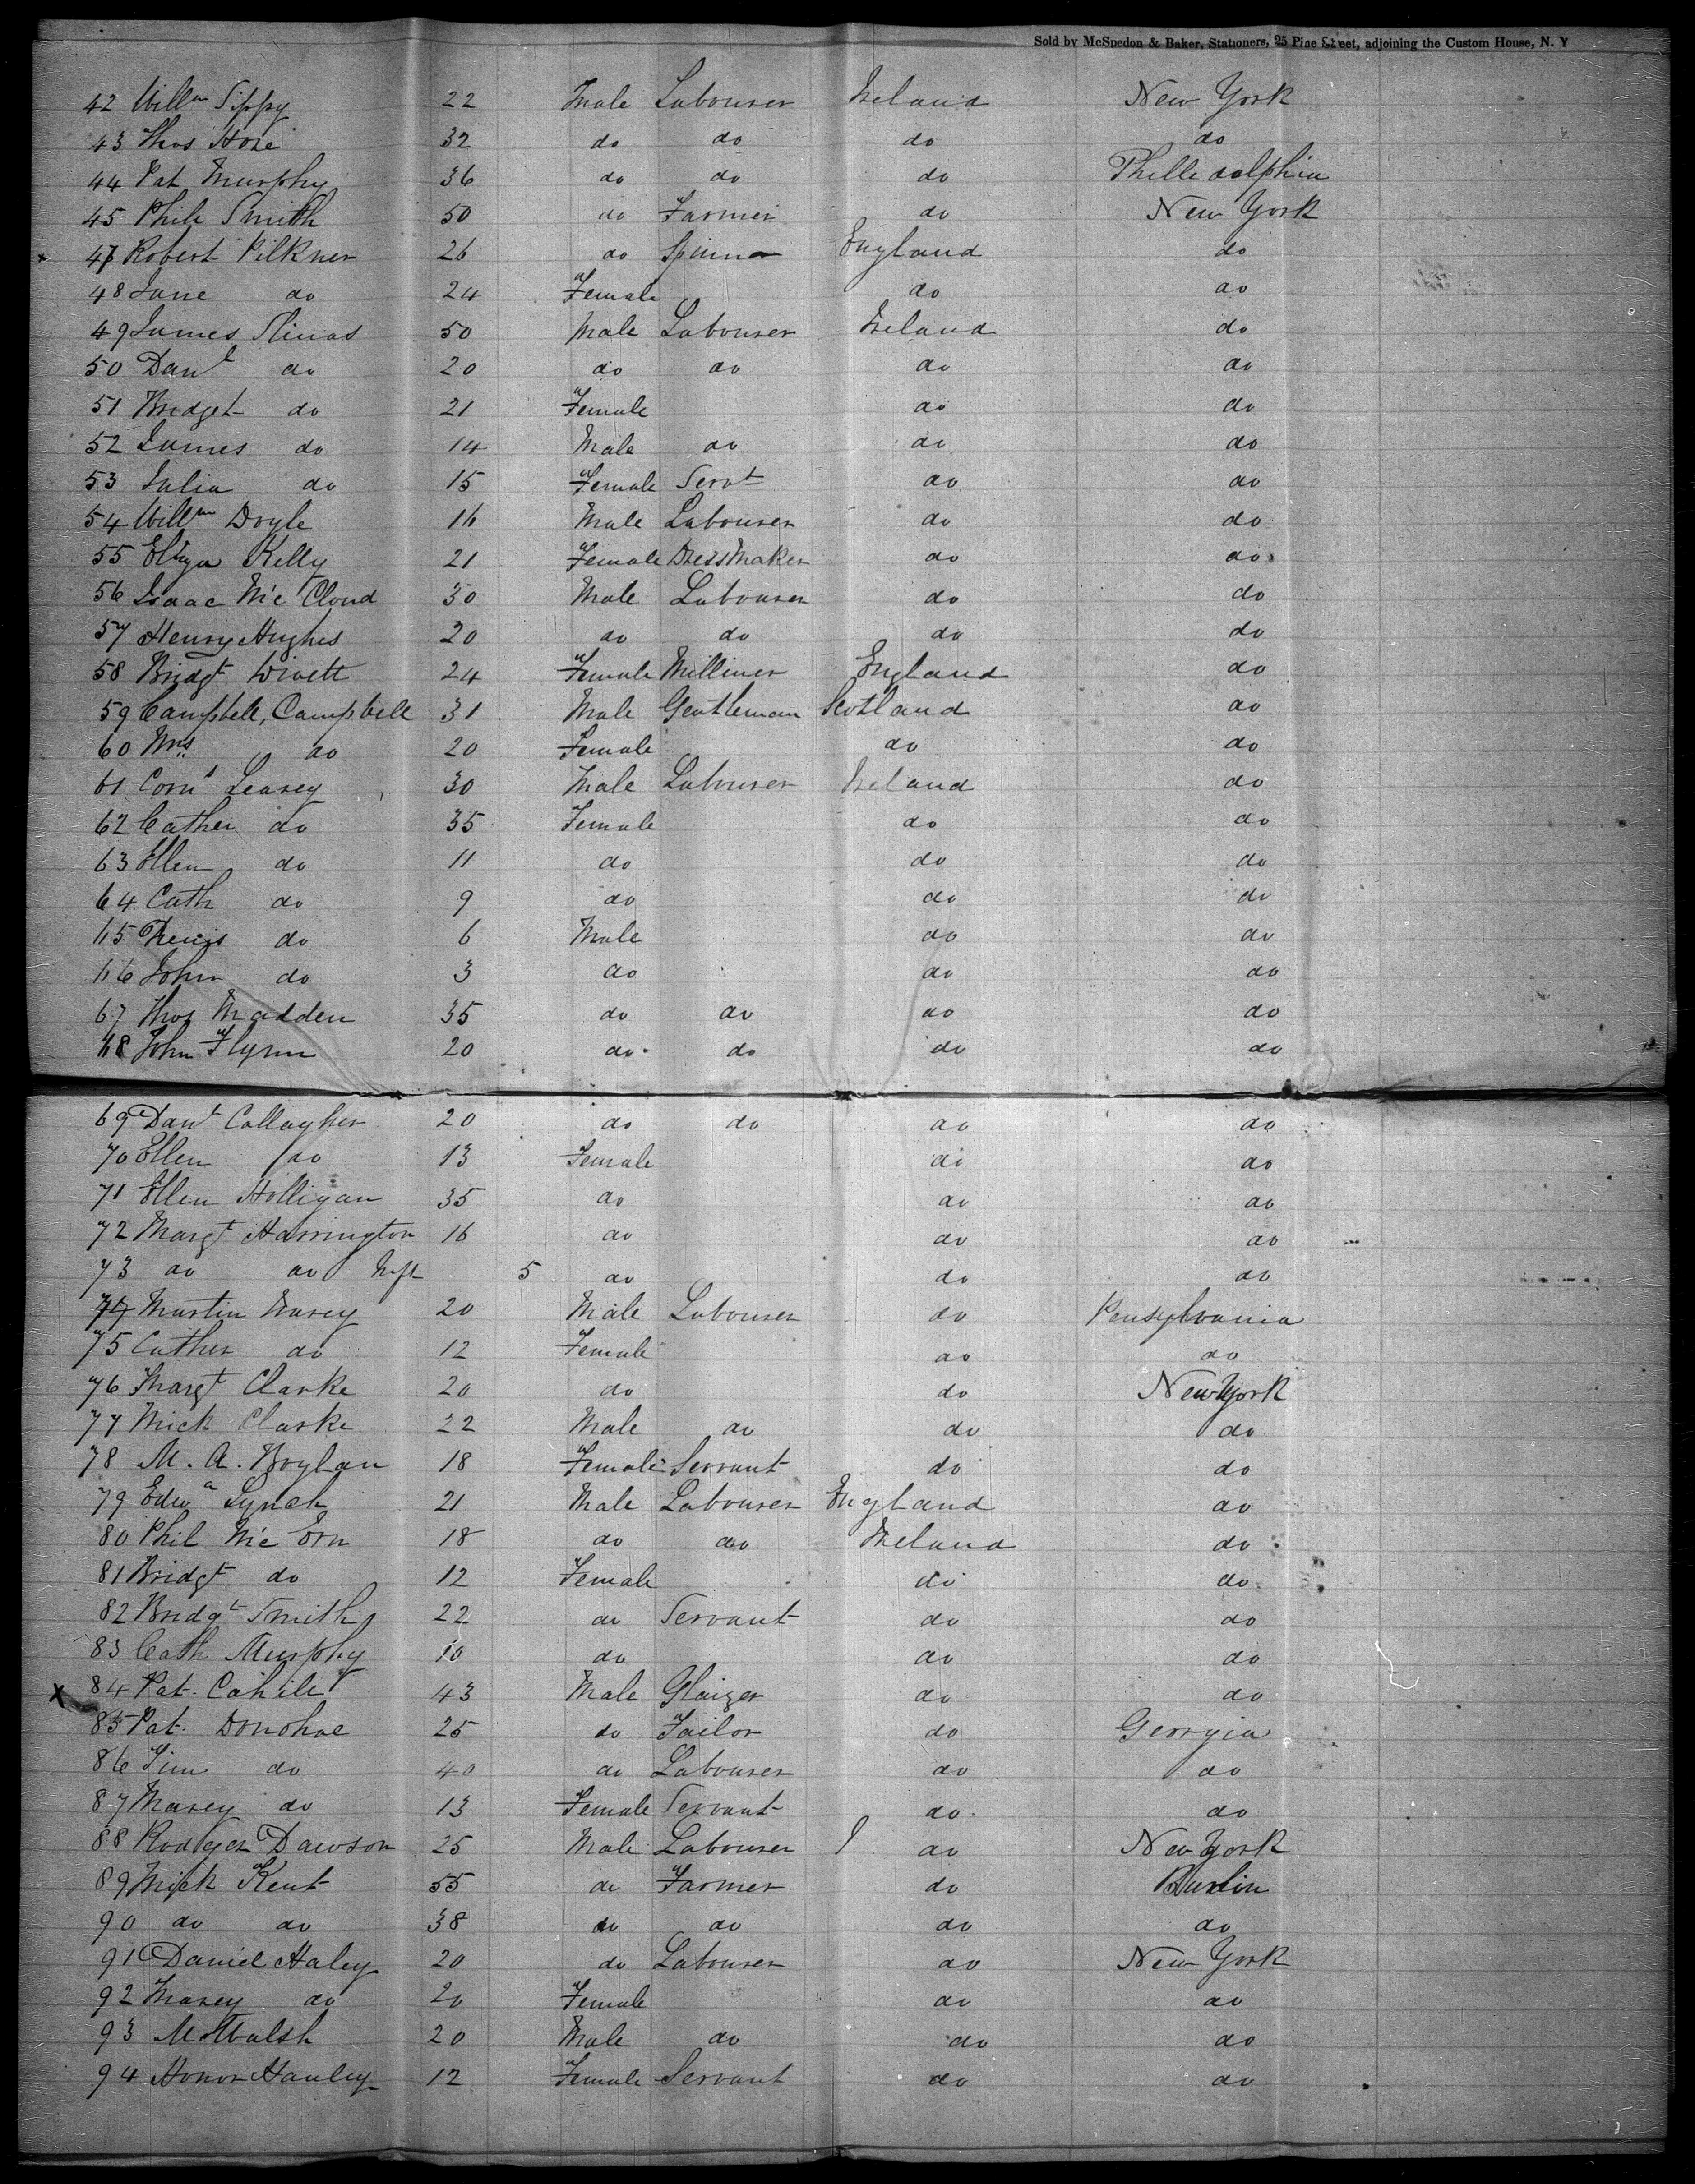 Sold by McSpedon & Baker, Stationers, 25 Pine Street, adjoining the Custom House, N. Y
42 Willm Sippy 22 Male Labourer Ireland New York
43 Thos Hore 32 do do do do
44 Pat Murphy 36 do do do Philledalphia
45 Phili Smith 50 do Farmer do New York
47 Robert Pilkner 26 do Spinner England do
48 Jane do 24 Female do do
49 James Slinas 50 Male Labourer Ireland do
50 Danl do 20 do do do do
51 Bridget do 21 Female do do
52 James do 14 Male do do do
53 Julia do 15 Female Servt do do
54 Willm Doyle 16 Male Labourer do do
55 Eliza Kelly 21 Female DressMaker do do
56 Isaac Mc Cloud 30 Male Labourer do do
57 Henry Hughes 20 do do do do
58 Bridgt Wivell 24 Female Milliner England do
59 Campbell, Campbell 31 Male Gentleman Scotland do
60 Mrs do 20 Female do do
61 Corns Learey 30 Male Labourer Ireland do
62 Cather do 35 Female do do
63 Ellen do 11 do do do
64 Cath do 9 do do do
65 Denis do 6 Male do do
66 John do 3 do do do
67 Thos Madden 35 do do do do
68 John Flynn 20 do do do do
69 Danl Collagher 20 do do do do
70 Ellen do 13 Female do do
71 Ellen Holligan 35 do do do
72 Margt Harrington 16 do do do
73 do do Inft 5 do do do
74 Martin Marey 20 Male Labourer do Pensylvania
75 Cather do 12 Female do do
76 Margt Clarke 20 do do New York
77 Mick Clarke 22 Male do do do
78 M. A. Boylan 18 Female Servant do do
79 Edwd Lynch 21 Male Labourer England do
80 Phil Mc Ern 18 do do Ireland do
81 Bridgt do 12 Female do do
82 Bridgt Smith 22 do Servant do do
83 Cath Murphy 10 do do do
X 84 Pat. Cahill 43 Male Glaizer do do
85 Pat. Donohoe 25 do Tailor do Georgia
86 Tim do 40 do Labourer do do
87 Marey do 13 Female Servant do do
88 Rodger Dawson 25 Male Labourer do New York
89 Mick Kent 55 do Farmer do
90 do do 38 do do do do
91 Daniel Haley 20 do Labourer do New York
92 Marey do 20 Female do do
93 M Walsh 20 Male do do do
94 Honor Hanley 12 Female Servant do do